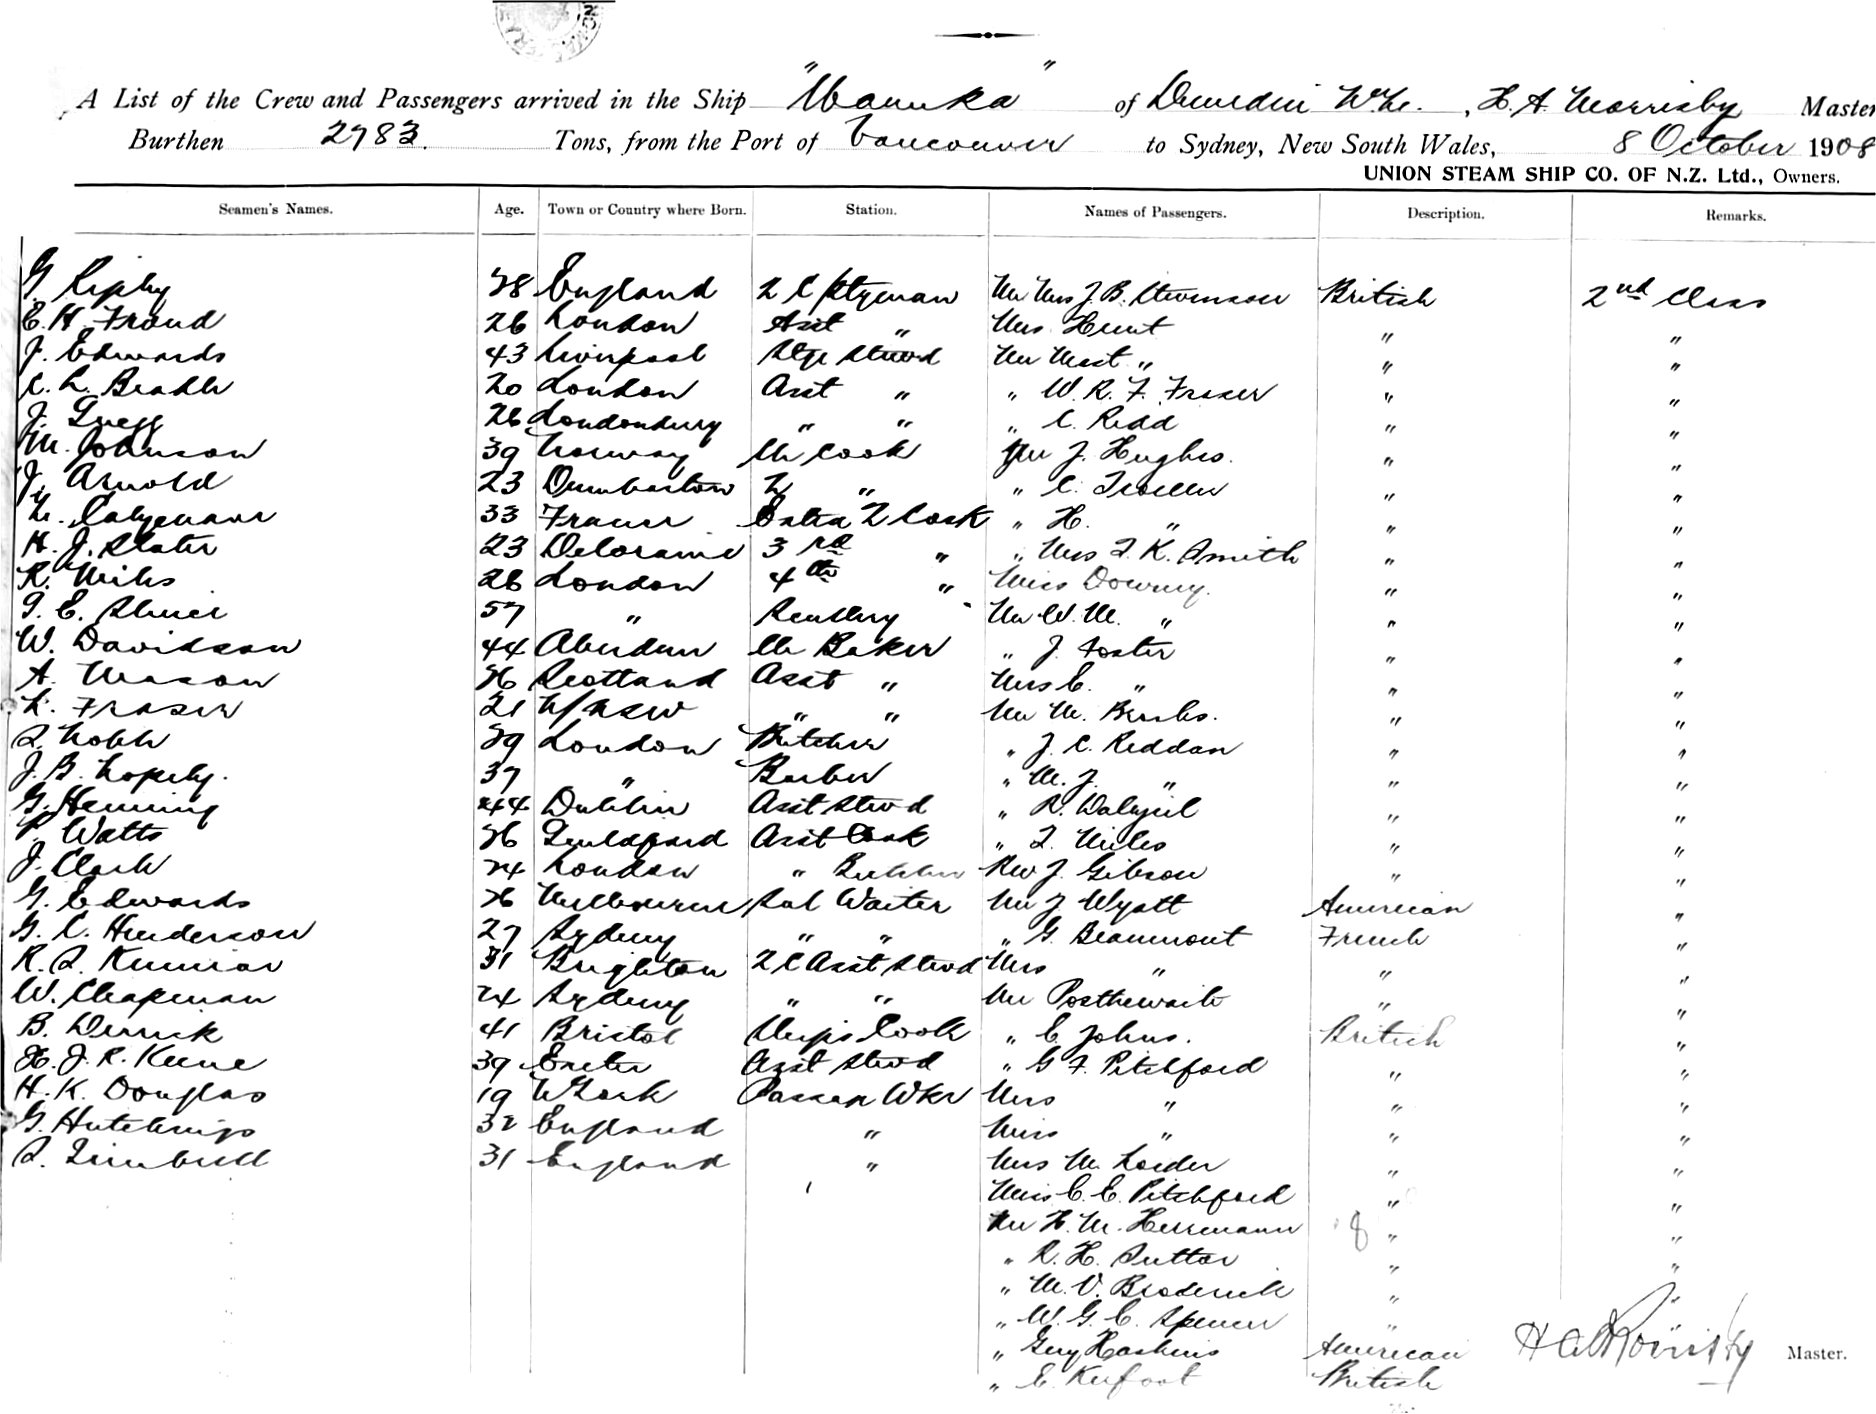 A List of the Crew and Passengers arrived in the Ship "Manuka" of Dunedin, H. A. Morrisby Master
Burthen 2783. Tons, from the Port of Vancouver to Sydney, New South Wales, 8 October 1908
UNION STEAM SHIP CO. OF N.Z. Ltd., Owners.
Seamen's Names. Age. Town or Country where Born. Station. Names of Passengers. Description. Remarks.
G. Ripley 38 England 2 C Mr Mrs J. B. Stevenson British 2nd Class
E. H. Froud 26 London Asst " Mrs Hunt " "
J. Edwards 43 Liverpool Stge Stwd Mr Mast " " "
C. L. Beadle 20 London Asst " " W. R. F. Fraser " "
J. Gregg 26 Londonderry " " " C. Redd " "
M. Johnson 39 Norway Ch Cook Mr J. Hughes. " "
J. Arnold 23 Dumbarton 2 " " C. " "
33 France Extra 2 Cook " H. " " "
H. J. Slater 23 Deloraine 3rd " " Mrs T. K. Smith " "
R. Miles 26 London 4th " Miss Downey. " "
57 " Scullery Mr W. M. " " "
W. Davidson 44 Aberdeen Ch Baker " J. Foster " "
A. Mason 36 Scotland Asst " Mrs E. " " "
L. Fraser 21 N/NSW " " Mr M. " "
T. Noble 39 London Butcher " J. C. Reddan " "
J. B. 37 " Barber " M. J. " " "
G. Henning 44 Dublin Asst Stwd " R. Dalziel " "
Watts 36 Guildford Asst Cook " T. Miles " "
J. Clark 24 London " Butcher Rev J. Gibson " "
G. Edwards 26 Melbourne Sal Waiter Mr J Wyatt American "
G. C. Henderson 27 Sydney " " " G. Beaumont French "
31 Brighton 2 C Asst Stwd Mrs " " "
W. Chapman 24 Sydney " " Mr Posthewaite " "
B. Derrick 41 Bristol Ships Cook " E. Johns. British "
H. J. R. Keene 39 Exeter Asst Stwd " G F. Pitchford " "
H. K. Douglas 19 Passage Wkr Mrs " " "
G. Hutchings 32 England " Miss " " "
T. Trimbell 31 England " Mrs M. Loader " "
Miss E. E. Pitchford " "
Mr H. M. Herrmann " "
" R. H. Suttor " "
" M. V. Broderick " "
" W. G. C. Spencer "
" Guy Haskins American H A Morrisby Master.
" E. Kerfoot British